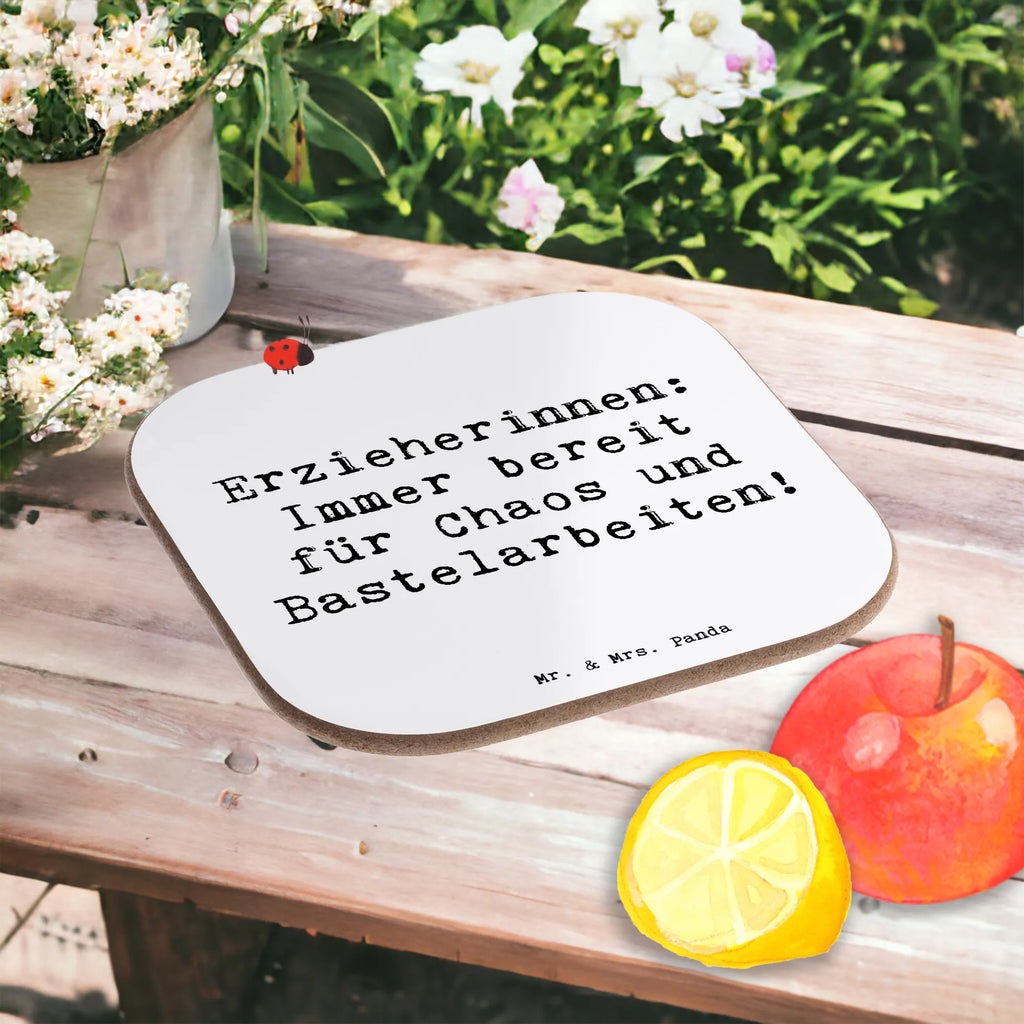 Erzieherinnen:
Immer bereit
für Chaos und
Bastelarbeiten!
Mr. & Mrs. Panda